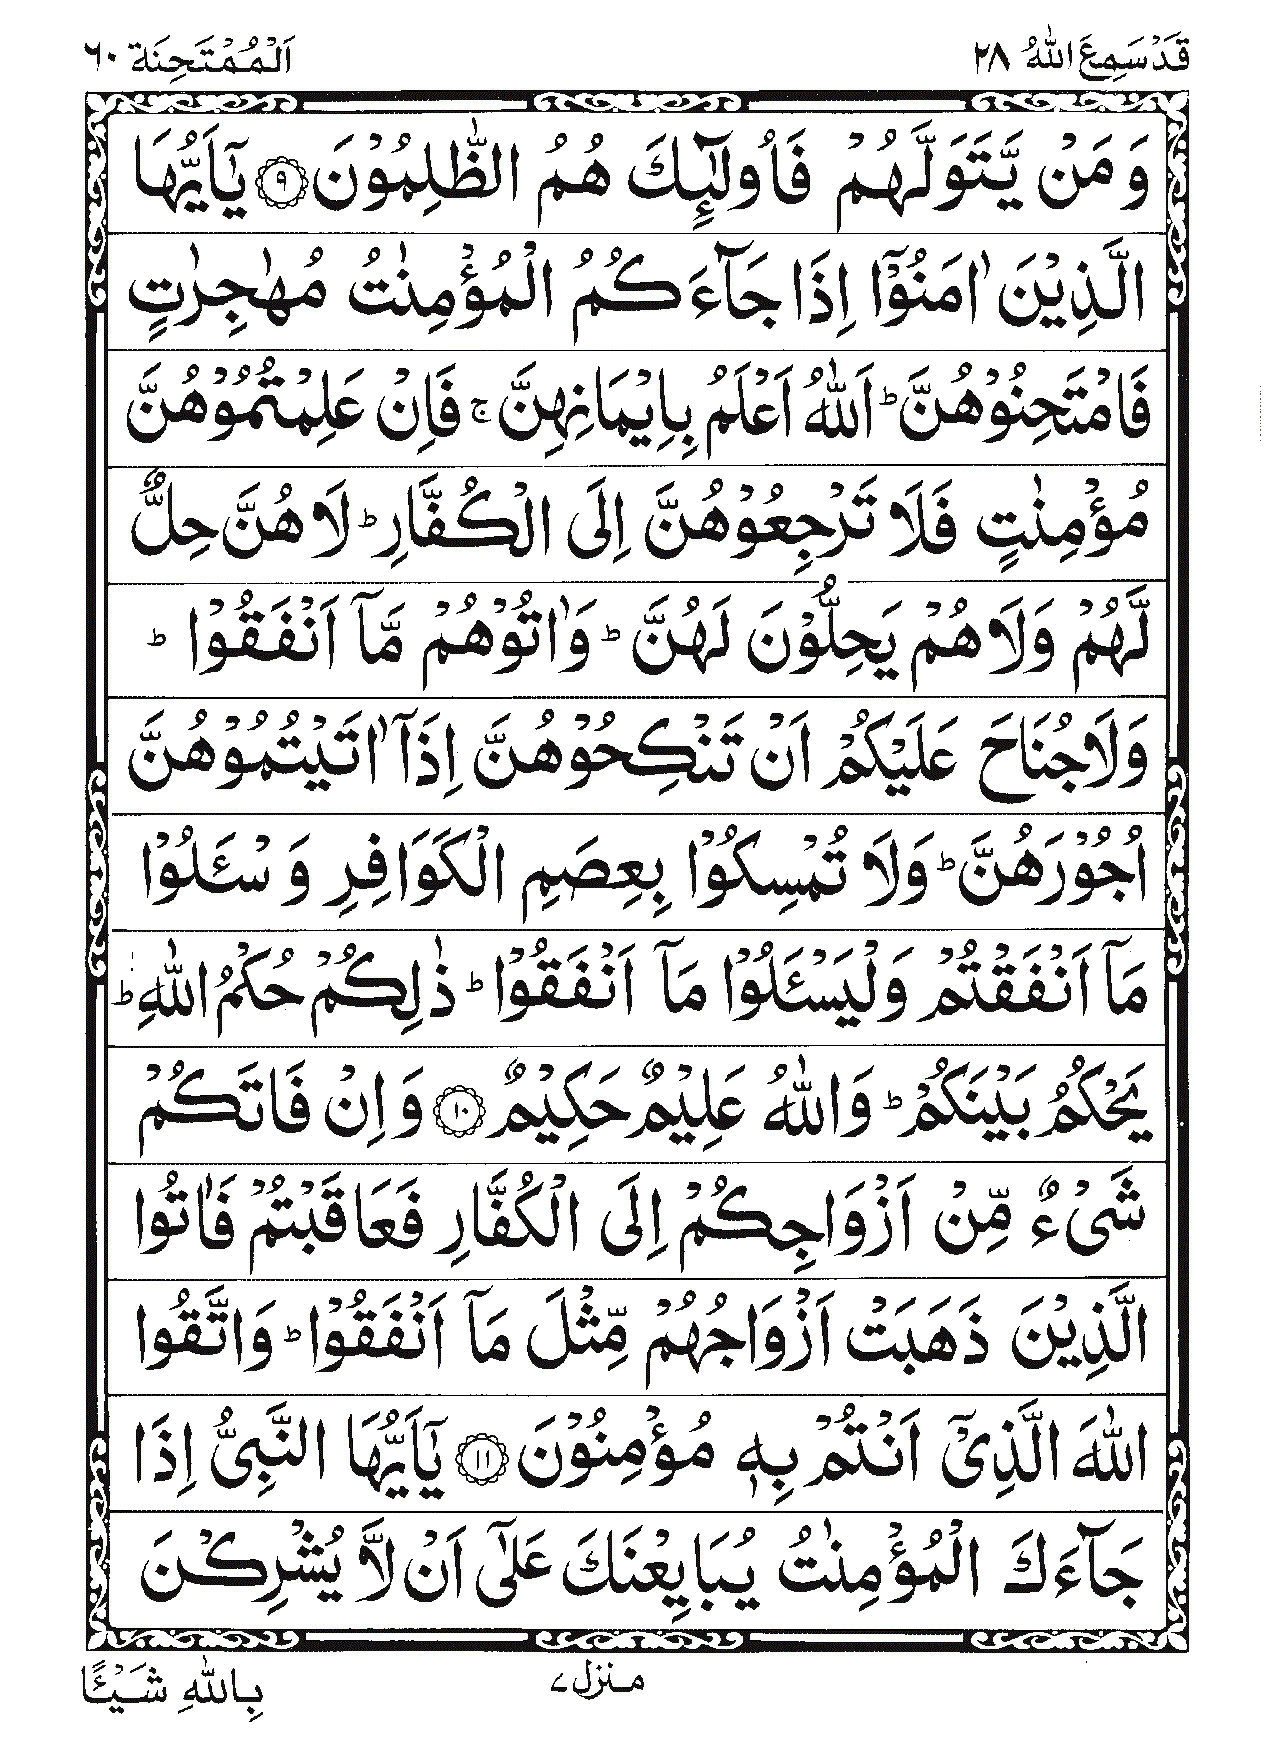 قَدْ سَمِعَ اللّٰهُ ٢٨
اَلْمُمْتَحِنَة ٦٠
وَ مَنْ يَّتَوَلَّهُمْ فَاُولٰٓئِكَ هُمُ الظّٰلِمُوْنَ ۝٩ يٰٓاَيُّهَا
الَّذِيْنَ اٰمَنُوْٓا اِذَا جَآءَكُمُ الْمُؤْمِنٰتُ مُهٰجِرٰتٍ
فَامْتَحِنُوْهُنَّ ؕ اَللّٰهُ اَعْلَمُ بِاِيْمَانِهِنَّ ۚ فَاِنْ عَلِمْتُمُوْهُنَّ
مُؤْمِنٰتٍ فَلَا تَرْجِعُوْهُنَّ اِلَى الْكُفَّارِ ؕ لَا هُنَّ حِلٌّ
لَّهُمْ وَلَا هُمْ يَحِلُّوْنَ لَهُنَّ ؕ وَاٰتُوْهُمْ مَّآ اَنْفَقُوْا ؕ
وَلَا جُنَاحَ عَلَيْكُمْ اَنْ تَنْكِحُوْهُنَّ اِذَآ اٰتَيْتُمُوْهُنَّ
اُجُوْرَهُنَّ ؕ وَلَا تُمْسِكُوْا بِعِصَمِ الْكَوَافِرِ وَ سْـَٔلُوْا
مَآ اَنْفَقْتُمْ وَلْيَسْـَٔلُوْا مَآ اَنْفَقُوْا ؕ ذٰلِكُمْ حُكْمُ اللّٰهِ ؕ
يَحْكُمُ بَيْنَكُمْ ؕ وَاللّٰهُ عَلِيْمٌ حَكِيْمٌ ۝١٠ وَ اِنْ فَاتَكُمْ
شَيْءٌ مِّنْ اَزْوَاجِكُمْ اِلَى الْكُفَّارِ فَعَاقَبْتُمْ فَاٰتُوا
الَّذِيْنَ ذَهَبَتْ اَزْوَاجُهُمْ مِّثْلَ مَآ اَنْفَقُوْا ؕ وَاتَّقُوا
اللّٰهَ الَّذِيْٓ اَنْتُمْ بِهٖ مُؤْمِنُوْنَ ۝١١ يٰٓاَيُّهَا النَّبِيُّ اِذَا
جَآءَكَ الْمُؤْمِنٰتُ يُبَايِعْنَكَ عَلٰٓى اَنْ لَّا يُشْرِكْنَ
منزل ٧
بِاللّٰهِ شَيْـًٔا